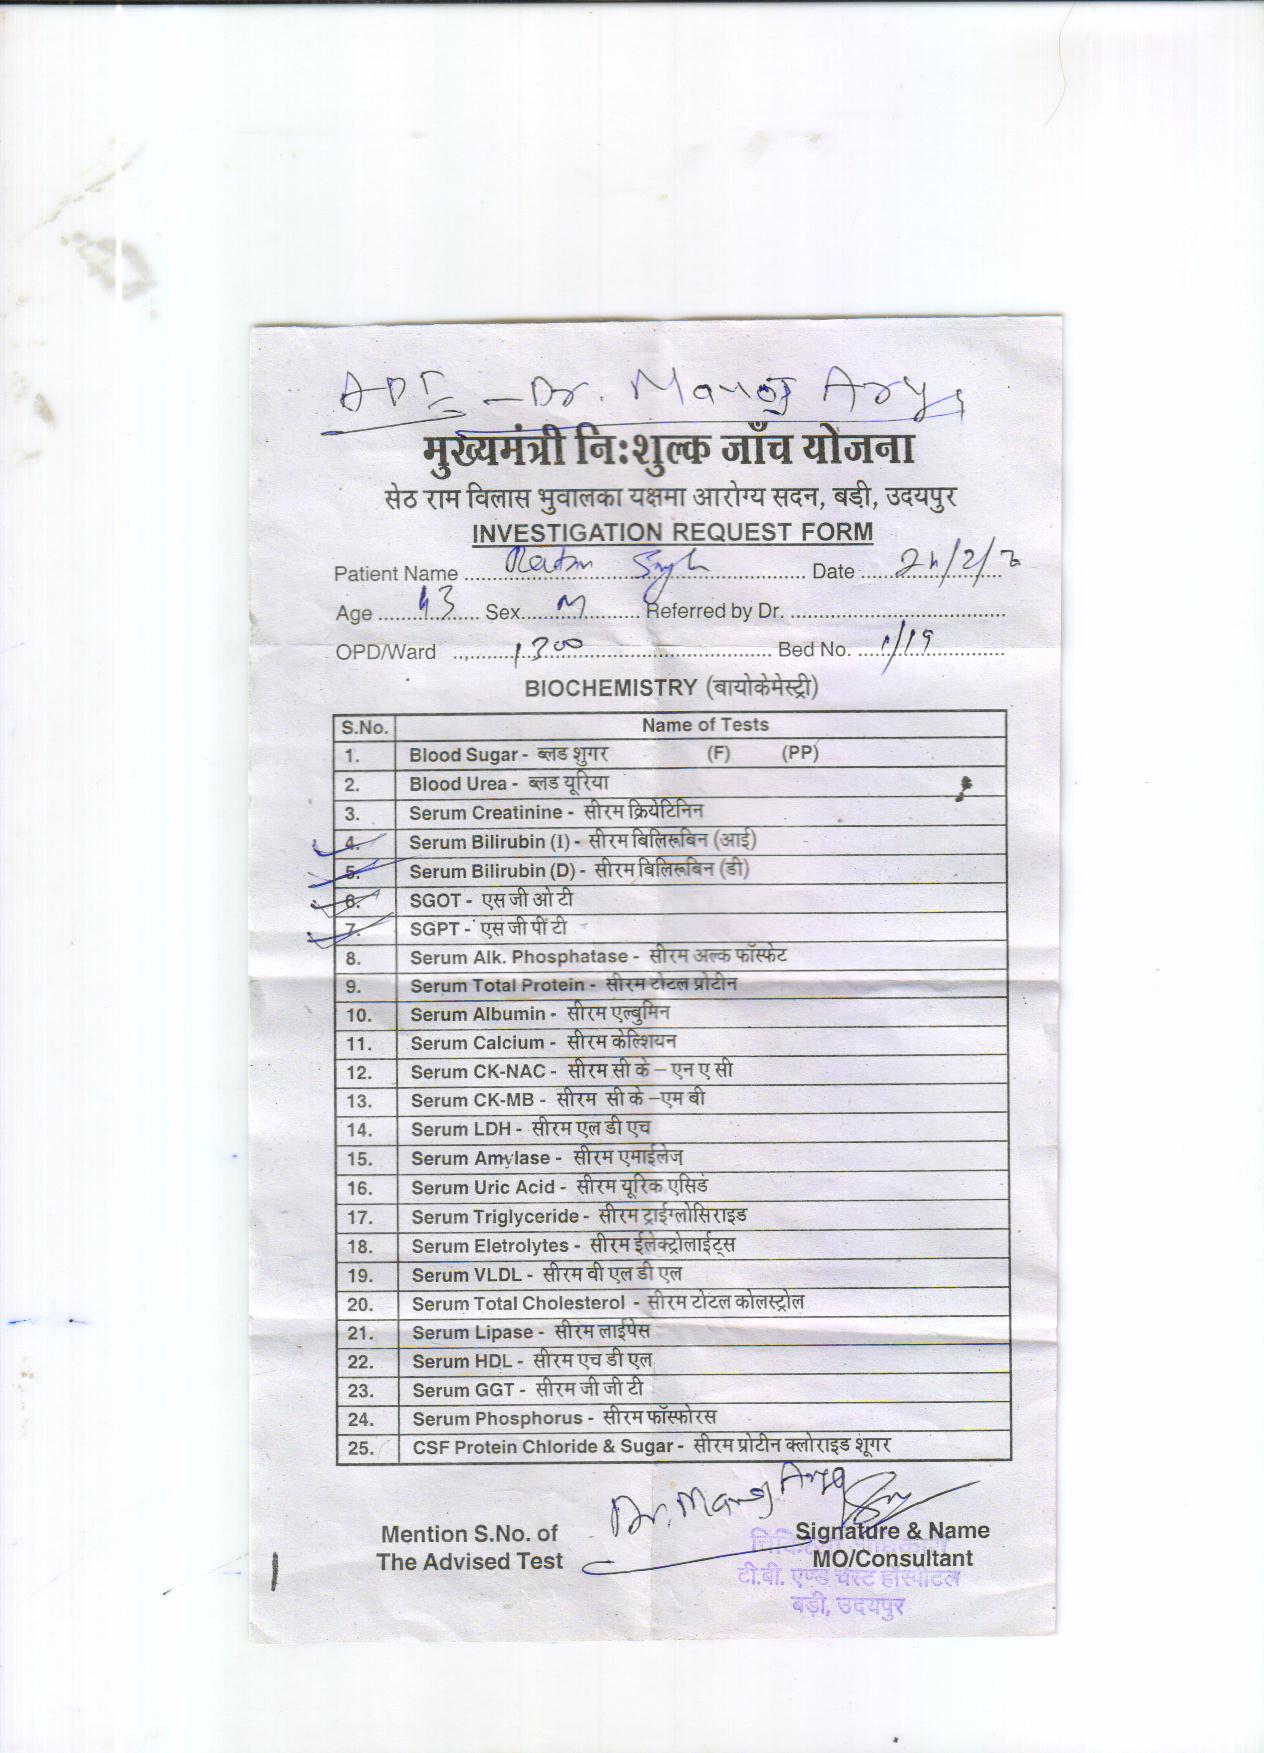 Dr. Manoj Arya
मुख्यमंत्री निःशुल्क जाँच योजना
सेठ राम विलास भुवालका यक्षमा आरोग्य सदन, बड़ी, उदयपुर
INVESTIGATION REQUEST FORM
Patient Name Singh Date
Age 43 Sex M Referred by Dr.
OPD/Ward 1300 Bed No. 1/19
BIOCHEMISTRY (बायोकेमेस्ट्री)
S.No. Name of Tests
1. Blood Sugar - ब्लड शुगर (F) (PP)
2. Blood Urea - ब्लड यूरिया
3. Serum Creatinine - सीरम क्रियेटिनिन
4. Serum Bilirubin (I) - सीरम बिलिरूबिन (आई)
5. Serum Bilirubin (D) - सीरम बिलिरूबिन (डी)
6. SGOT - एस जी ओ टी
7. SGPT - एस जी पी टी
8. Serum Alk. Phosphatase - सीरम अल्क फॉस्फेट
9. Serum Total Protein - सीरम टोटल प्रोटीन
10. Serum Albumin - सीरम एल्बुमिन
11. Serum Calcium - सीरम केल्शियन
12. Serum CK-NAC - सीरम सी के – एन ए सी
13. Serum CK-MB - सीरम सी के –एम बी
14. Serum LDH - सीरम एल डी एच
15. Serum Amylase - सीरम एमाईलेज़
16. Serum Uric Acid - सीरम यूरिक एसिड
17. Serum Triglyceride - सीरम ट्राईग्लोसिराइड
18. Serum Eletrolytes - सीरम ईलेक्ट्रोलाईट्स
19. Serum VLDL - सीरम वी एल डी एल
20. Serum Total Cholesterol - सीरम टोटल कोलस्ट्रोल
21. Serum Lipase - सीरम लाईपेस
22. Serum HDL - सीरम एच डी एल
23. Serum GGT - सीरम जी जी टी
24. Serum Phosphorus - सीरम फॉस्फोरस
25. CSF Protein Chloride & Sugar - सीरम प्रोटीन क्लोराइड शूगर
Dr. Manoj Arya
Mention S.No. of Signature & Name
The Advised Test MO/Consultant
टी.बी. एण्ड चेस्ट हॉस्पीटल
बड़ी, उदयपुर